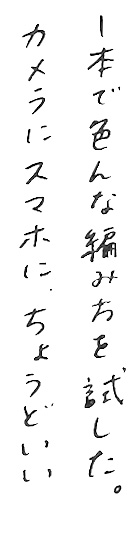 1本で色んな編み方を試した。
カメラにスマホに、ちょうどいい